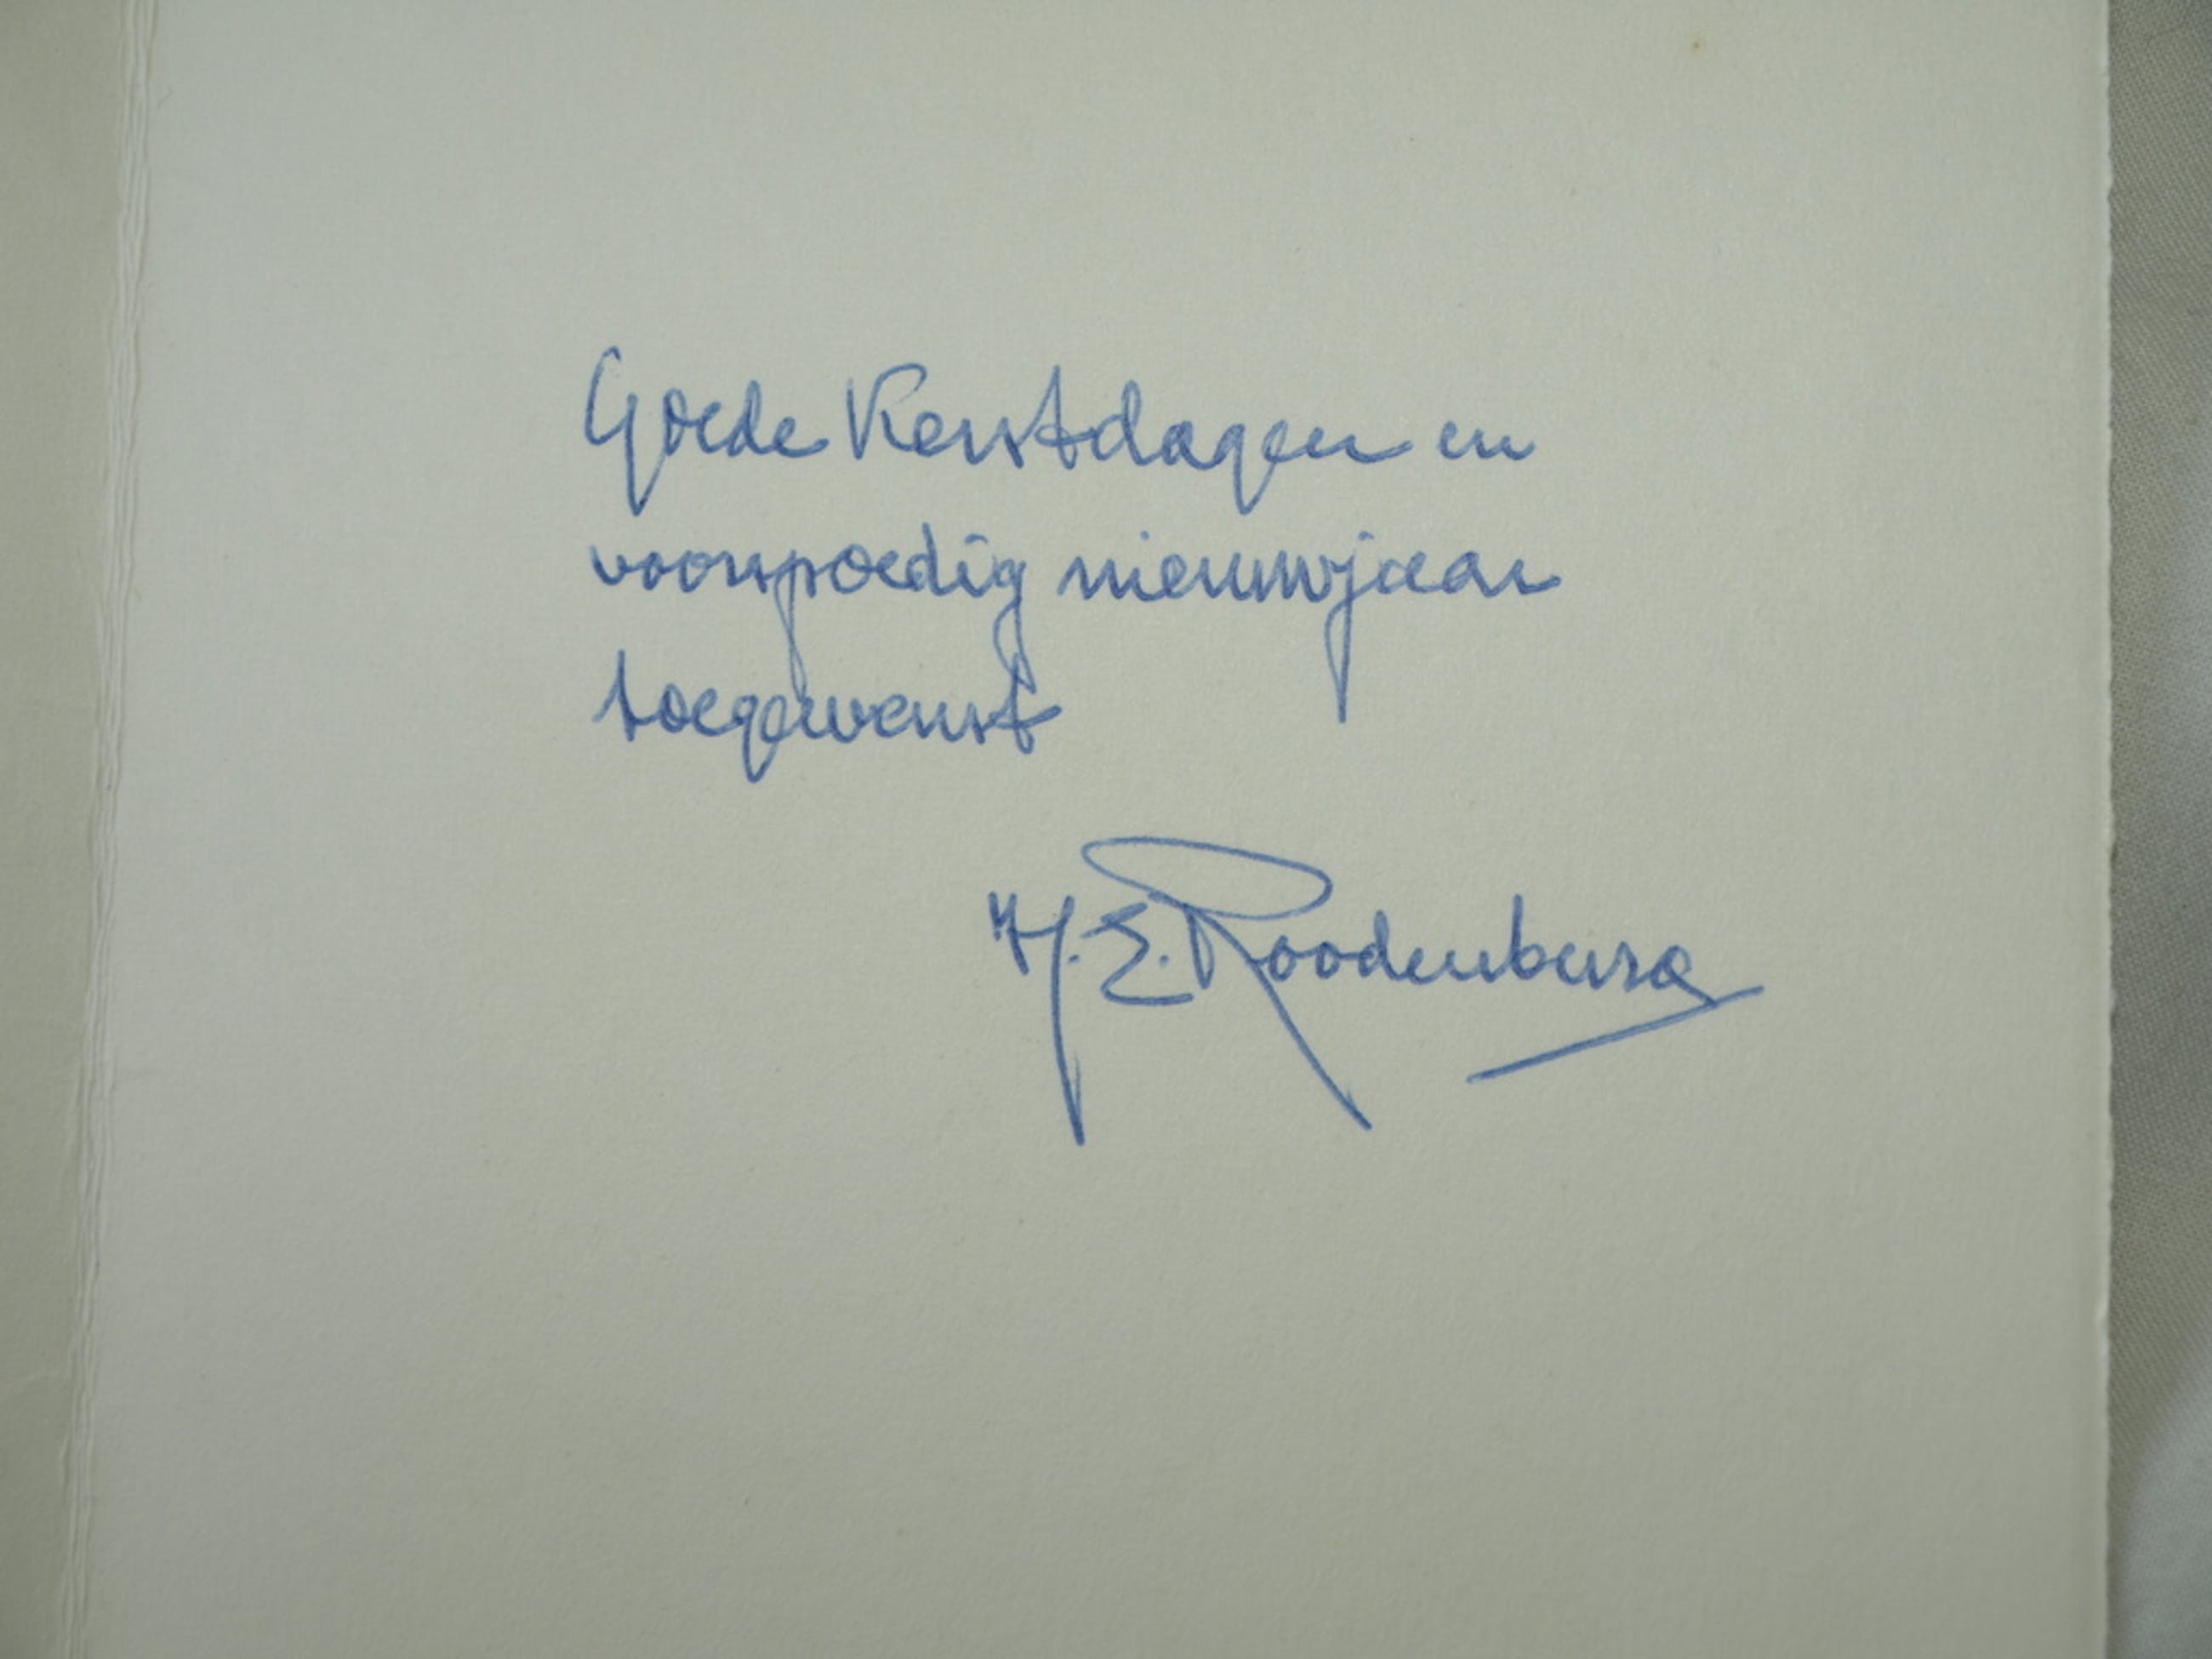 Goede Kerstdagen en
voorspoedig nieuwjaar
toegewenst
H.E. Roodenburg